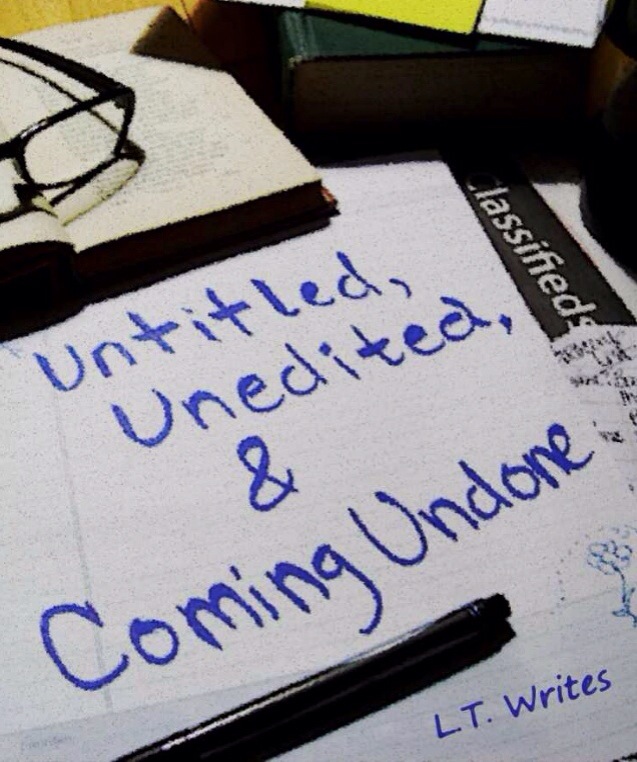 Classifieds
Untitled,
Unedited,
&
Coming Undone
L.T. Writes